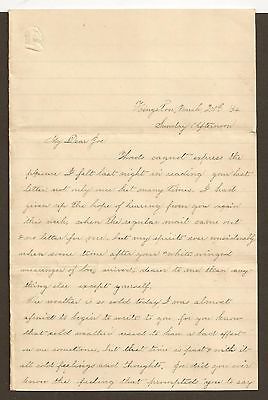 Kingston, March 20th
Sunday Afternoon
My Dear Joe
Words cannot express the
pleasure I felt last night in reading your last
letter not only once but many times. I had
given up the hope of hearing from you again
this week, when the regular mail came out
& no letter for me, but my spirits rose
when some time after your white winged
messenger of love arrived, dearer to me than any
thing else except yourself.
The weather is so cold today I was almost
afraid to begin to write to you for you know
that cold weather used to have a bad effect
on me sometimes, but that time is past & with it
all cold feelings and thoughts. Joe did you ever
know the feeling that prompted you to say